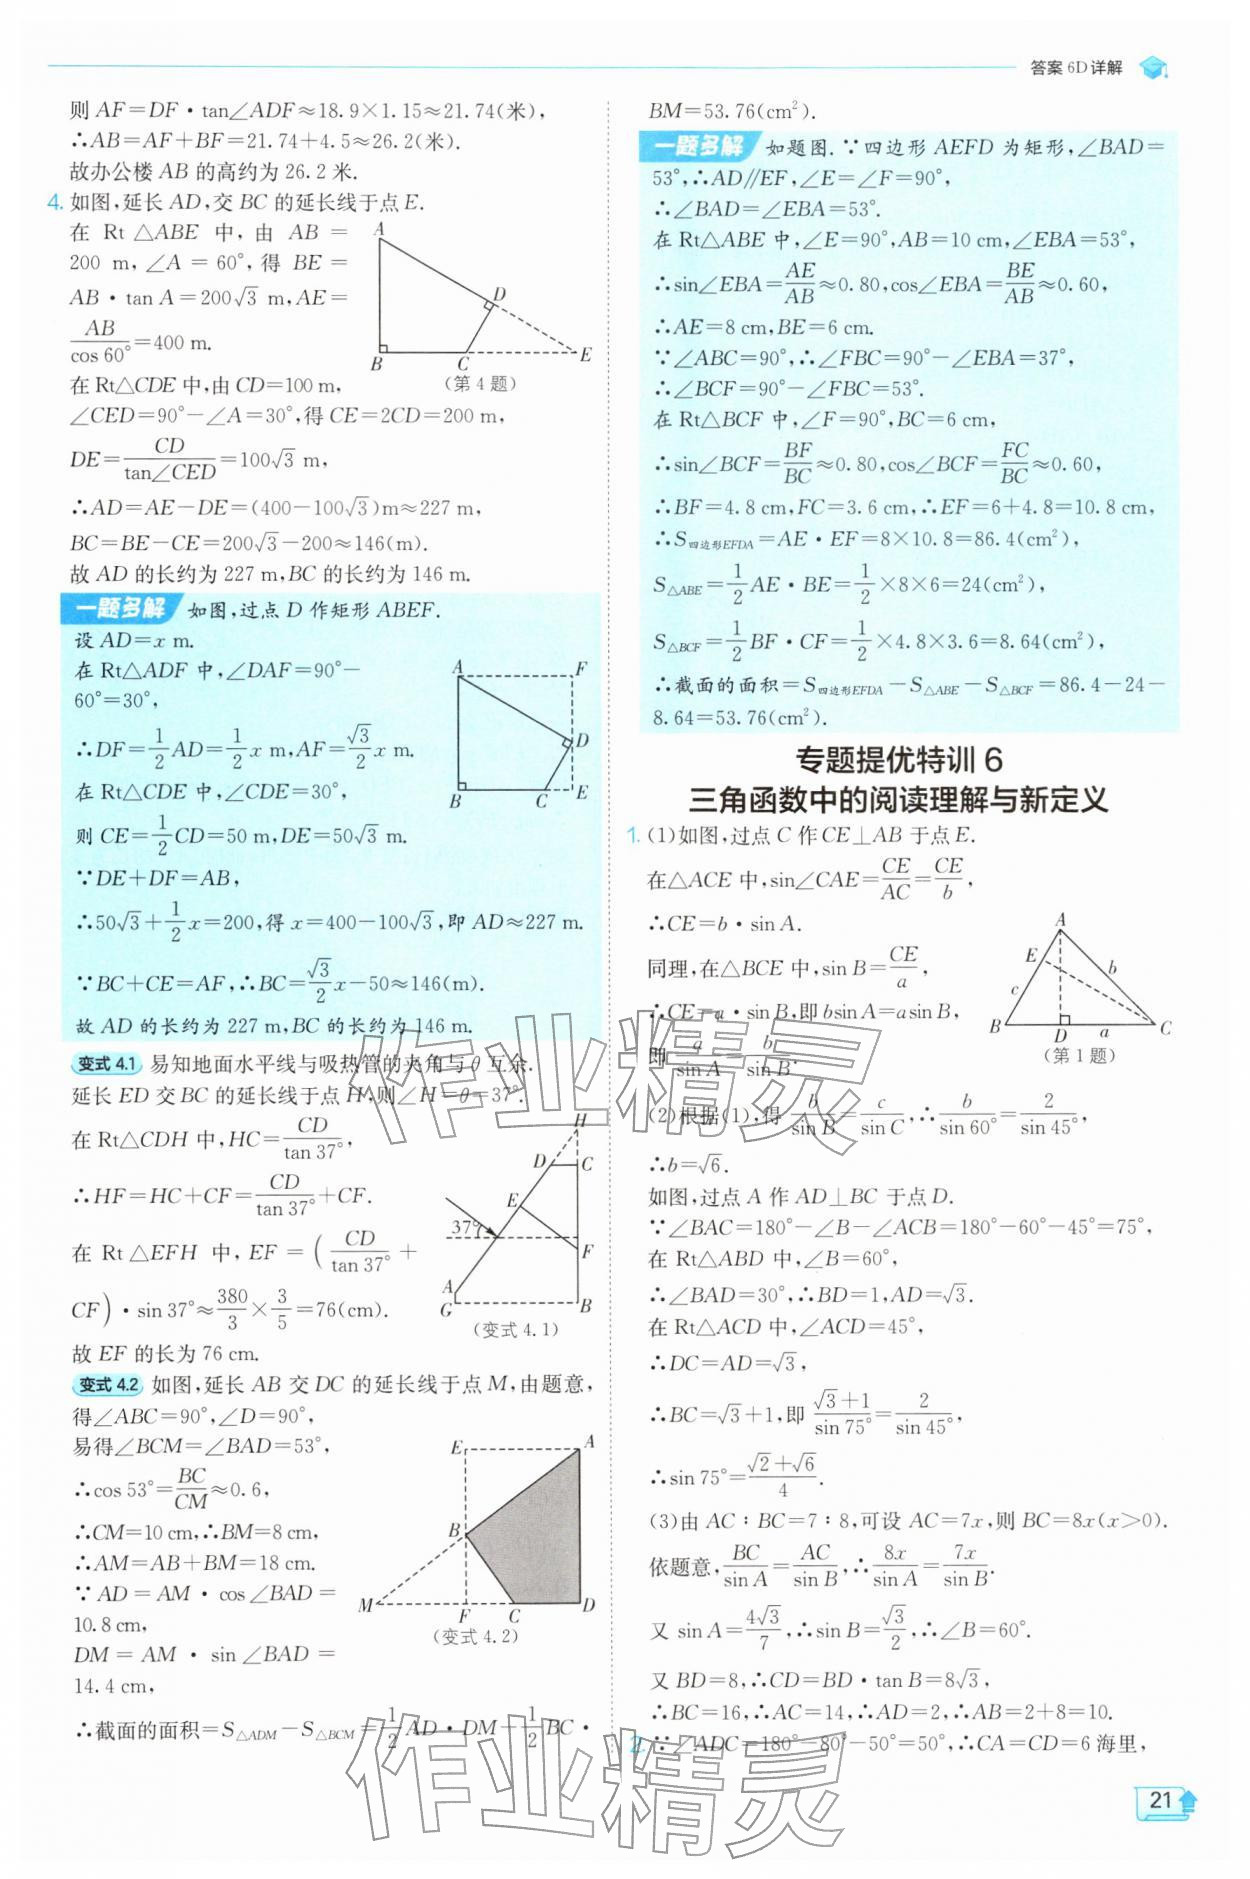 答案 6D 详解
则 AF=DF·tan∠ADF≈18.9×1.15≈21.74(米),
∴AB=AF+BF=21.74+4.5≈26.2(米).
故办公楼 AB 的高约为 26.2 米.
4. 如图,延长 AD,交 BC 的延长线于点 E.
在 Rt△ABE 中,由 AB=
200 m,∠A=60°,得 BE=
AB·tan A=200√3 m,AE=
AB/cos 60°=400 m.
在 Rt△CDE 中,由 CD=100 m,
∠CED=90°-∠A=30°,得 CE=2CD=200 m,
DE=CD/tan∠CED=100√3 m,
∴AD=AE-DE=(400-100√3)m≈227 m,
BC=BE-CE=200√3-200≈146(m).
故 AD 的长约为 227 m,BC 的长约为 146 m.
A
D
B
C
E
(第 4 题)
一题多解 如图,过点 D 作矩形 ABEF.
设 AD=x m.
在 Rt△ADF 中,∠DAF=90°-
60°=30°,
∴DF=1/2AD=1/2x m,AF=√3/2x m.
在 Rt△CDE 中,∠CDE=30°,
则 CE=1/2CD=50 m,DE=50√3 m.
∵DE+DF=AB,
∴50√3+1/2x=200,得 x=400-100√3,即 AD≈227 m.
∵BC+CE=AF,∴BC=√3/2x-50≈146(m).
故 AD 的长约为 227 m,BC 的长约为 146 m.
A
F
D
B
C
E
变式 4.1 易知地面水平线与吸热管的夹角与 θ 互余.
延长 ED 交 BC 的延长线于点 H,则∠H=θ=37°.
在 Rt△CDH 中,HC=CD/tan 37°,
∴HF=HC+CF=CD/tan 37°+CF.
在 Rt△EFH 中,EF=(CD/tan 37°+
CF)·sin 37°≈380/3×3/5=76(cm).
故 EF 的长为 76 cm.
H
D
C
E
37°
F
A
G
B
(变式 4.1)
变式 4.2 如图,延长 AB 交 DC 的延长线于点 M,由题意,
得∠ABC=90°,∠D=90°,
易得∠BCM=∠BAD=53°,
∴cos 53°=BC/CM≈0.6,
∴CM=10 cm,∴BM=8 cm,
∴AM=AB+BM=18 cm.
∵AD=AM·cos∠BAD=
10.8 cm,
DM=AM·sin∠BAD=
14.4 cm,
∴截面的面积=S△ADM-S△BCM=1/2AD·DM-1/2BC·
E
A
B
M
F
C
D
(变式 4.2)
BM=53.76(cm²).
一题多解 如题图.∵四边形 AEFD 为矩形,∠BAD=
53°,∴AD∥EF,∠E=∠F=90°,
∴∠BAD=∠EBA=53°.
在 Rt△ABE 中,∠E=90°,AB=10 cm,∠EBA=53°,
∴sin∠EBA=AE/AB≈0.80,cos∠EBA=BE/AB≈0.60,
∴AE=8 cm,BE=6 cm.
∵∠ABC=90°,∴∠FBC=90°-∠EBA=37°,
∴∠BCF=90°-∠FBC=53°.
在 Rt△BCF 中,∠F=90°,BC=6 cm,
∴sin∠BCF=BF/BC≈0.80,cos∠BCF=FC/BC≈0.60,
∴BF=4.8 cm,FC=3.6 cm,∴EF=6+4.8=10.8 cm,
∴S四边形EFDA=AE·EF=8×10.8=86.4(cm²),
S△ABE=1/2AE·BE=1/2×8×6=24(cm²),
S△BCF=1/2BF·CF=1/2×4.8×3.6=8.64(cm²),
∴截面的面积=S四边形EFDA-S△ABE-S△BCF=86.4-24-
8.64=53.76(cm²).
专题提优特训 6
三角函数中的阅读理解与新定义
1. (1)如图,过点 C 作 CE⊥AB 于点 E.
在△ACE 中,sin∠CAE=CE/AC=CE/b,
∴CE=b·sin A.
同理,在△BCE 中,sin B=CE/a,
∴CE=a·sin B,即 bsin A=asin B,
即 a/sin A=b/sin B.
A
E
c
b
B
D
a
C
(第 1 题)
(2)根据(1),得 b/sin B=c/sin C,∴b/sin 60°=2/sin 45°,
∴b=√6.
如图,过点 A 作 AD⊥BC 于点 D.
∵∠BAC=180°-∠B-∠ACB=180°-60°-45°=75°,
在 Rt△ABD 中,∠B=60°,
∴∠BAD=30°,∴BD=1,AD=√3.
在 Rt△ACD 中,∠ACD=45°,
∴DC=AD=√3,
∴BC=√3+1,即 (√3+1)/sin 75°=2/sin 45°,
∴sin 75°=(√2+√6)/4.
(3)由 AC∶BC=7∶8,可设 AC=7x,则 BC=8x(x>0).
依题意,BC/sin A=AC/sin B,∴8x/sin A=7x/sin B.
又 sin A=4√3/7,∴sin B=√3/2,∴∠B=60°.
又 BD=8,∴CD=BD·tan B=8√3,
∴BC=16,∴AC=14,∴AD=2,∴AB=2+8=10.
2. ∵∠ADC=180°-80°-50°=50°,∴CA=CD=6 海里,
作业精灵
作业精灵
21